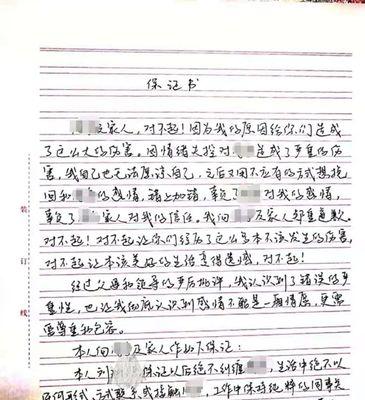 保证书
及家人，对不起！因为我的原因给你们造成
了这么大的伤害。因情绪失控对 造成了严重的伤
害，我自己也无法原谅自己，之后又因不应有的方式想挽
回和 的感情，错上加错，辜负了 对我的感情，
辜负了 家人对我的信任。我向 及家人郑重道歉。
对不起！对不起让你们经历了这么多本不该发生的伤害，
对不起让本该美好的生活变得遗憾，对不起！
经过父母和领导的严厉批评，我认识到了错误的严
重性，也让我彻底认识到感情不能是一厢情愿，更需
要尊重和包容。
本人向 及家人作如下保证：
本人 保证以后绝不纠缠 ，生活中绝不以
任何形式、方式联系或接触 ，工作中保持纯粹的同事关
装
订
线